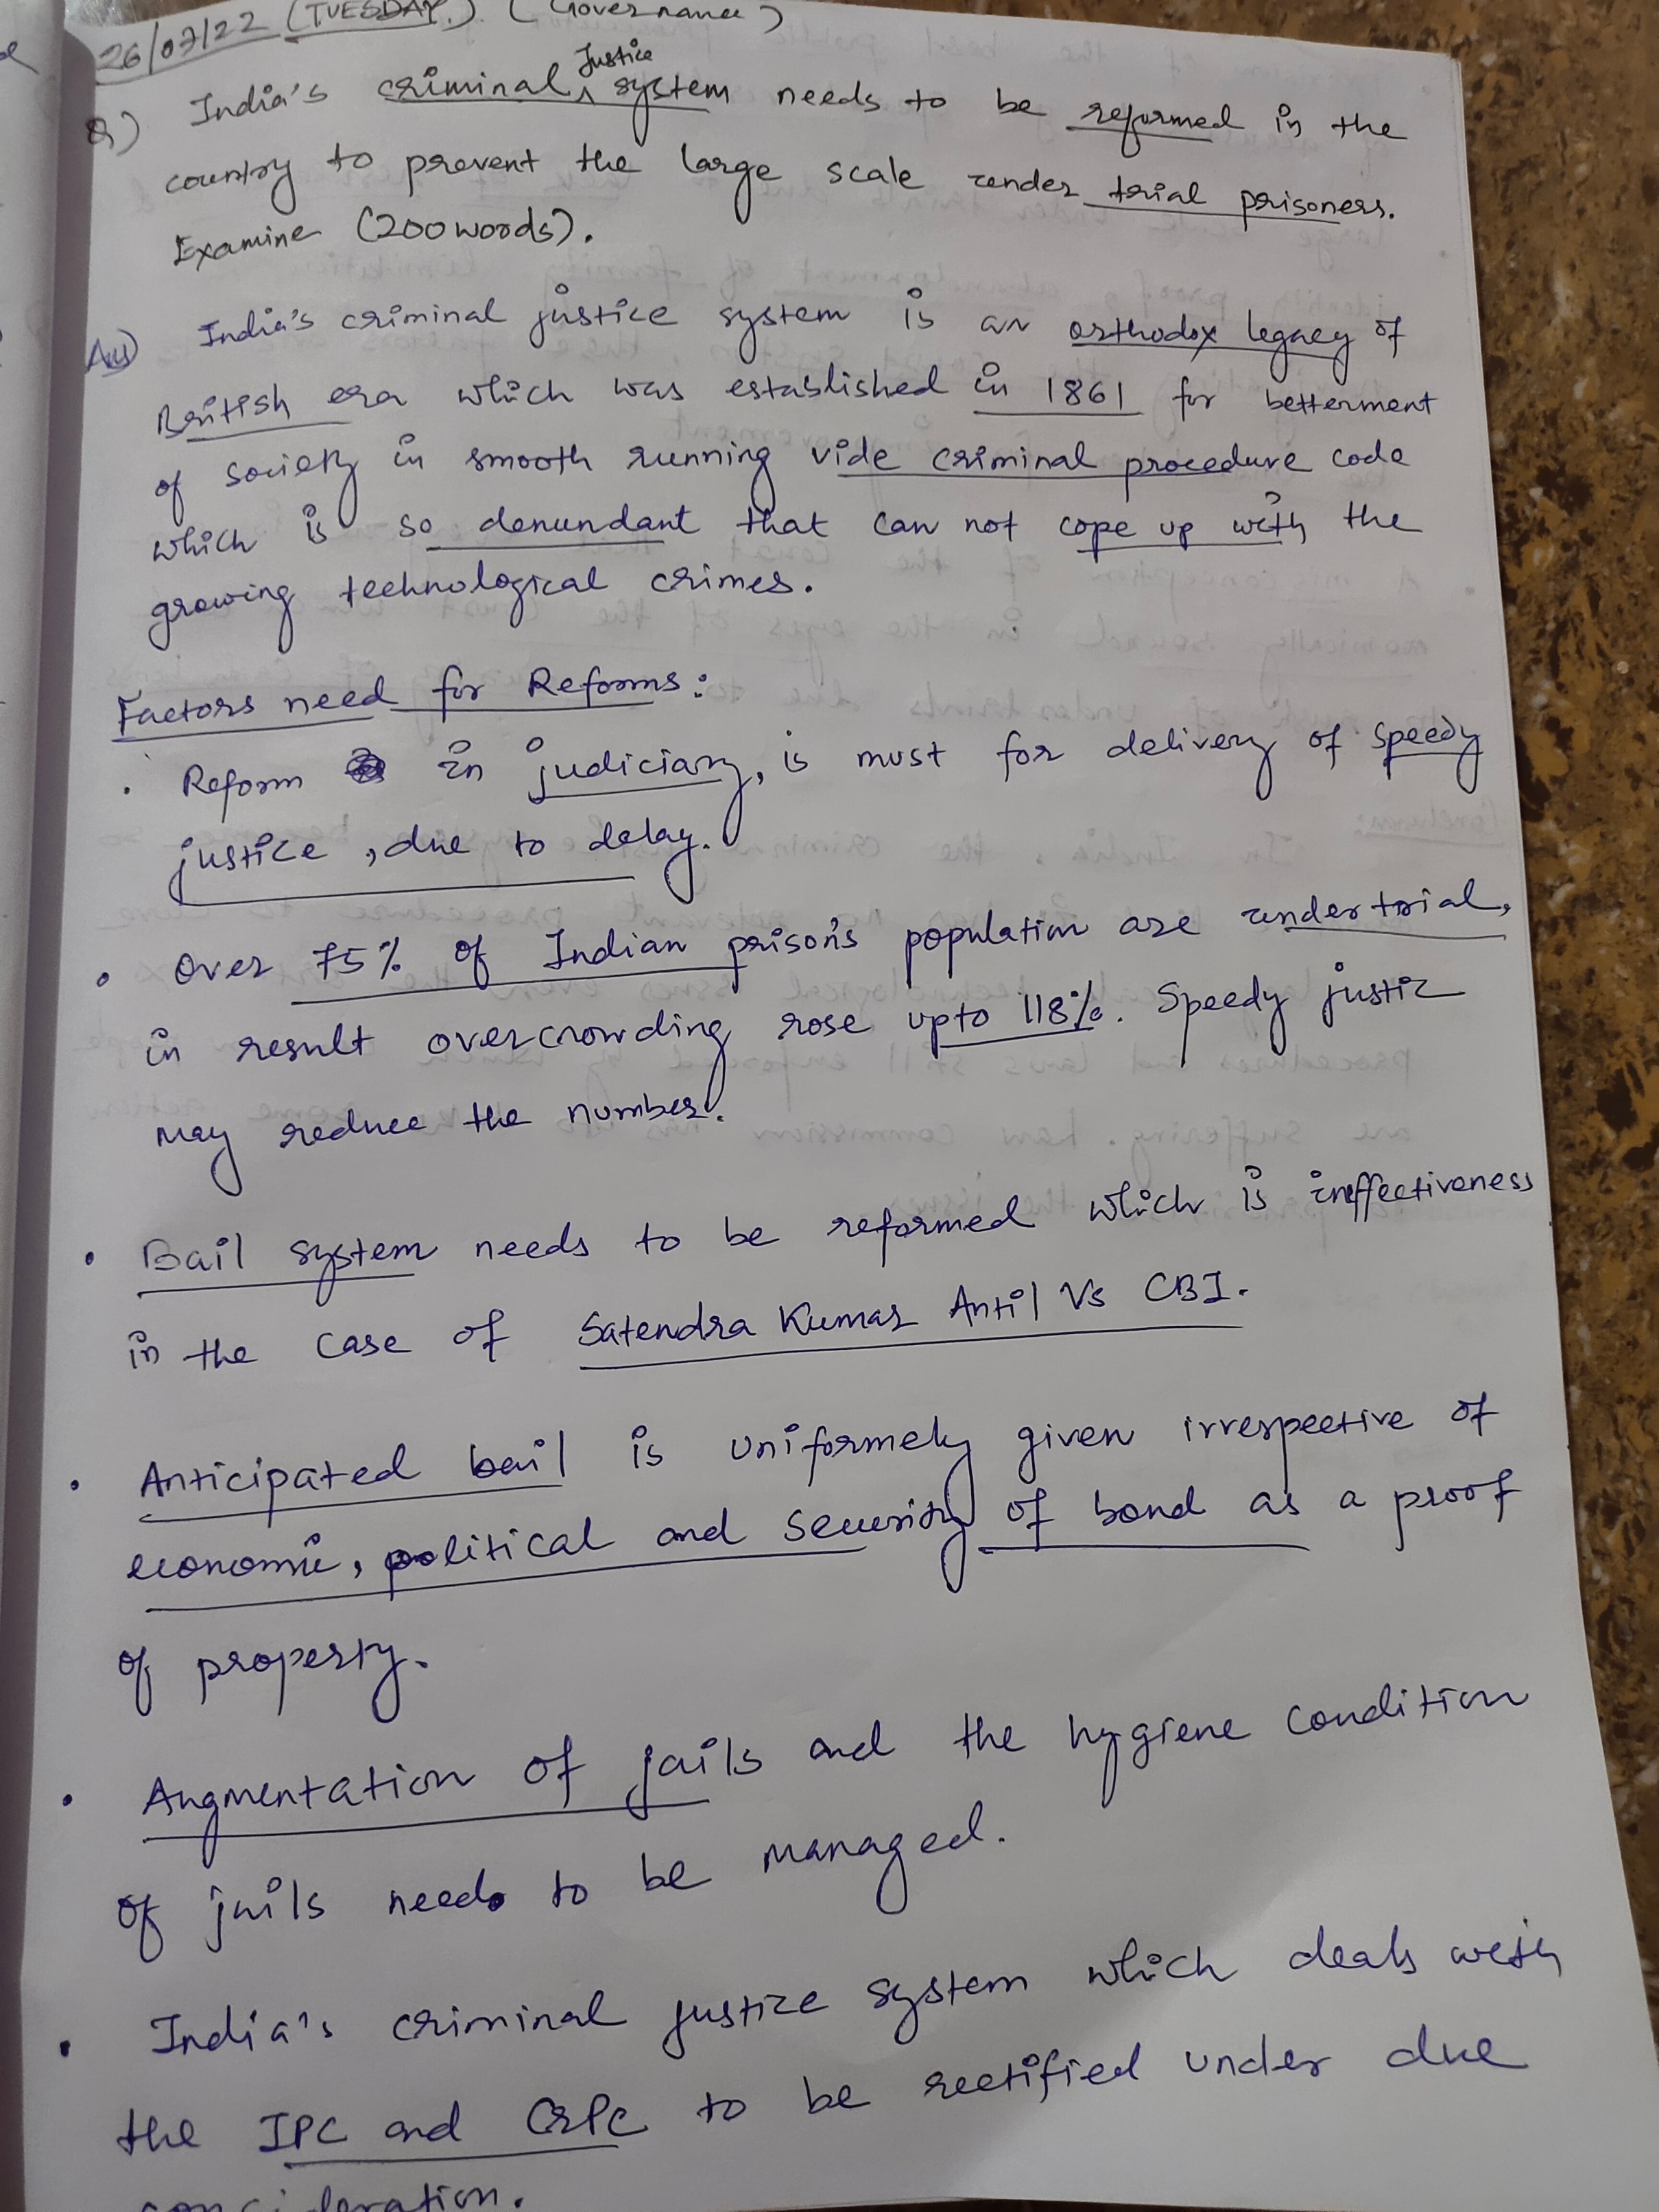 26/07/22 (TUESDAY.). (Governance)
Q) India's criminal Justice system needs to be reformed in the
country to prevent the large scale under trial prisoners.
Examine (200 words).
Ans) India's criminal justice system is an orthodox legacy of
British era which was established in 1861 for betterment
of society in smooth running vide criminal procedure code
which is so denundant that can not cope up with the
growing technological crimes.
Factors need for Reforms:
• Reform in judiciary, is must for delivery of speedy
justice, due to delay.
• Over 75% of Indian prison's population are under trial,
in result overcrowding rose upto 118%. Speedy justice
may reduce the number.
• Bail system needs to be reformed which is ineffectiveness
in the case of Satendra Kumar Antil Vs CBI.
• Anticipated bail is uniformely given irrespective of
economic, political and security of bond as a proof
of property.
• Augmentation of jails and the hygiene condition
of jails needs to be managed.
• India's criminal justice system which deals with
the IPC and CRPC to be rectified under due
consideration.